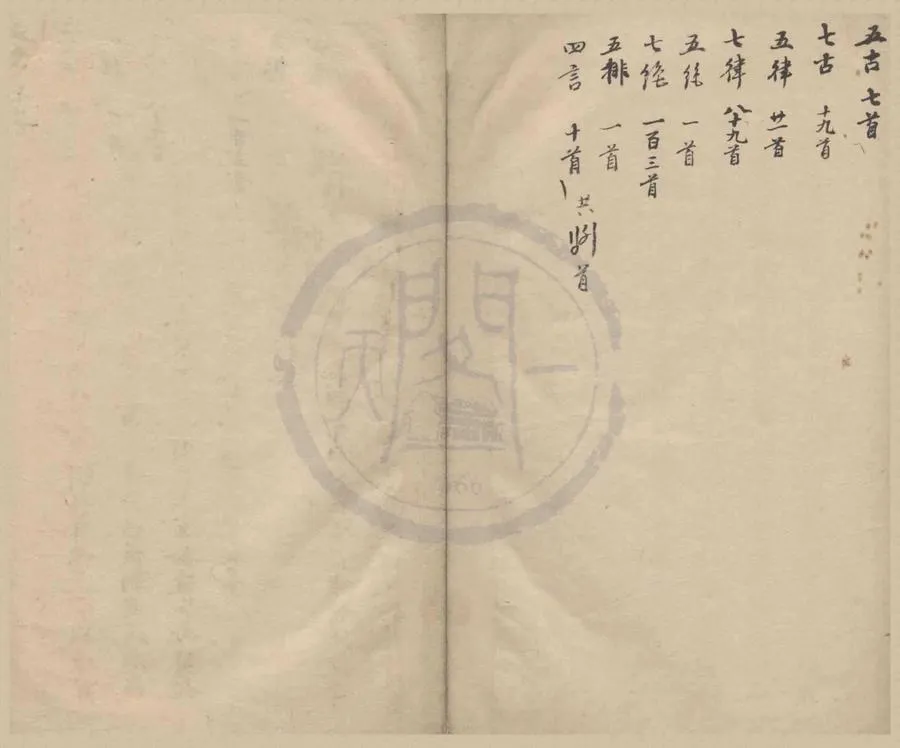 五古 七首
七古 十九首
五律 廿一首
七律 八十九首
五絕 一首
七絕 一百三首
五排 一首
四言 十首
共 首
天一閣